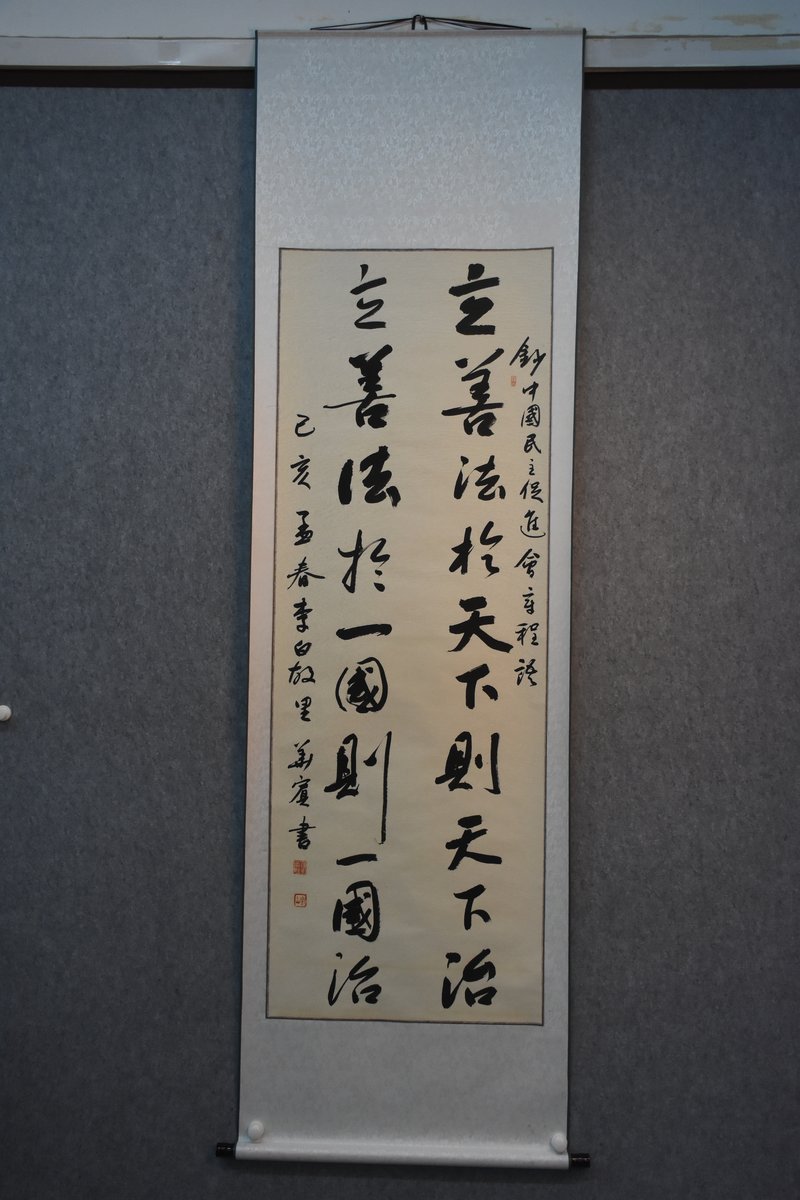 鈔中國民主促進會章程語
立善法於天下則天下治
立善法於一國則一國治
己亥孟春李白故里華賓書